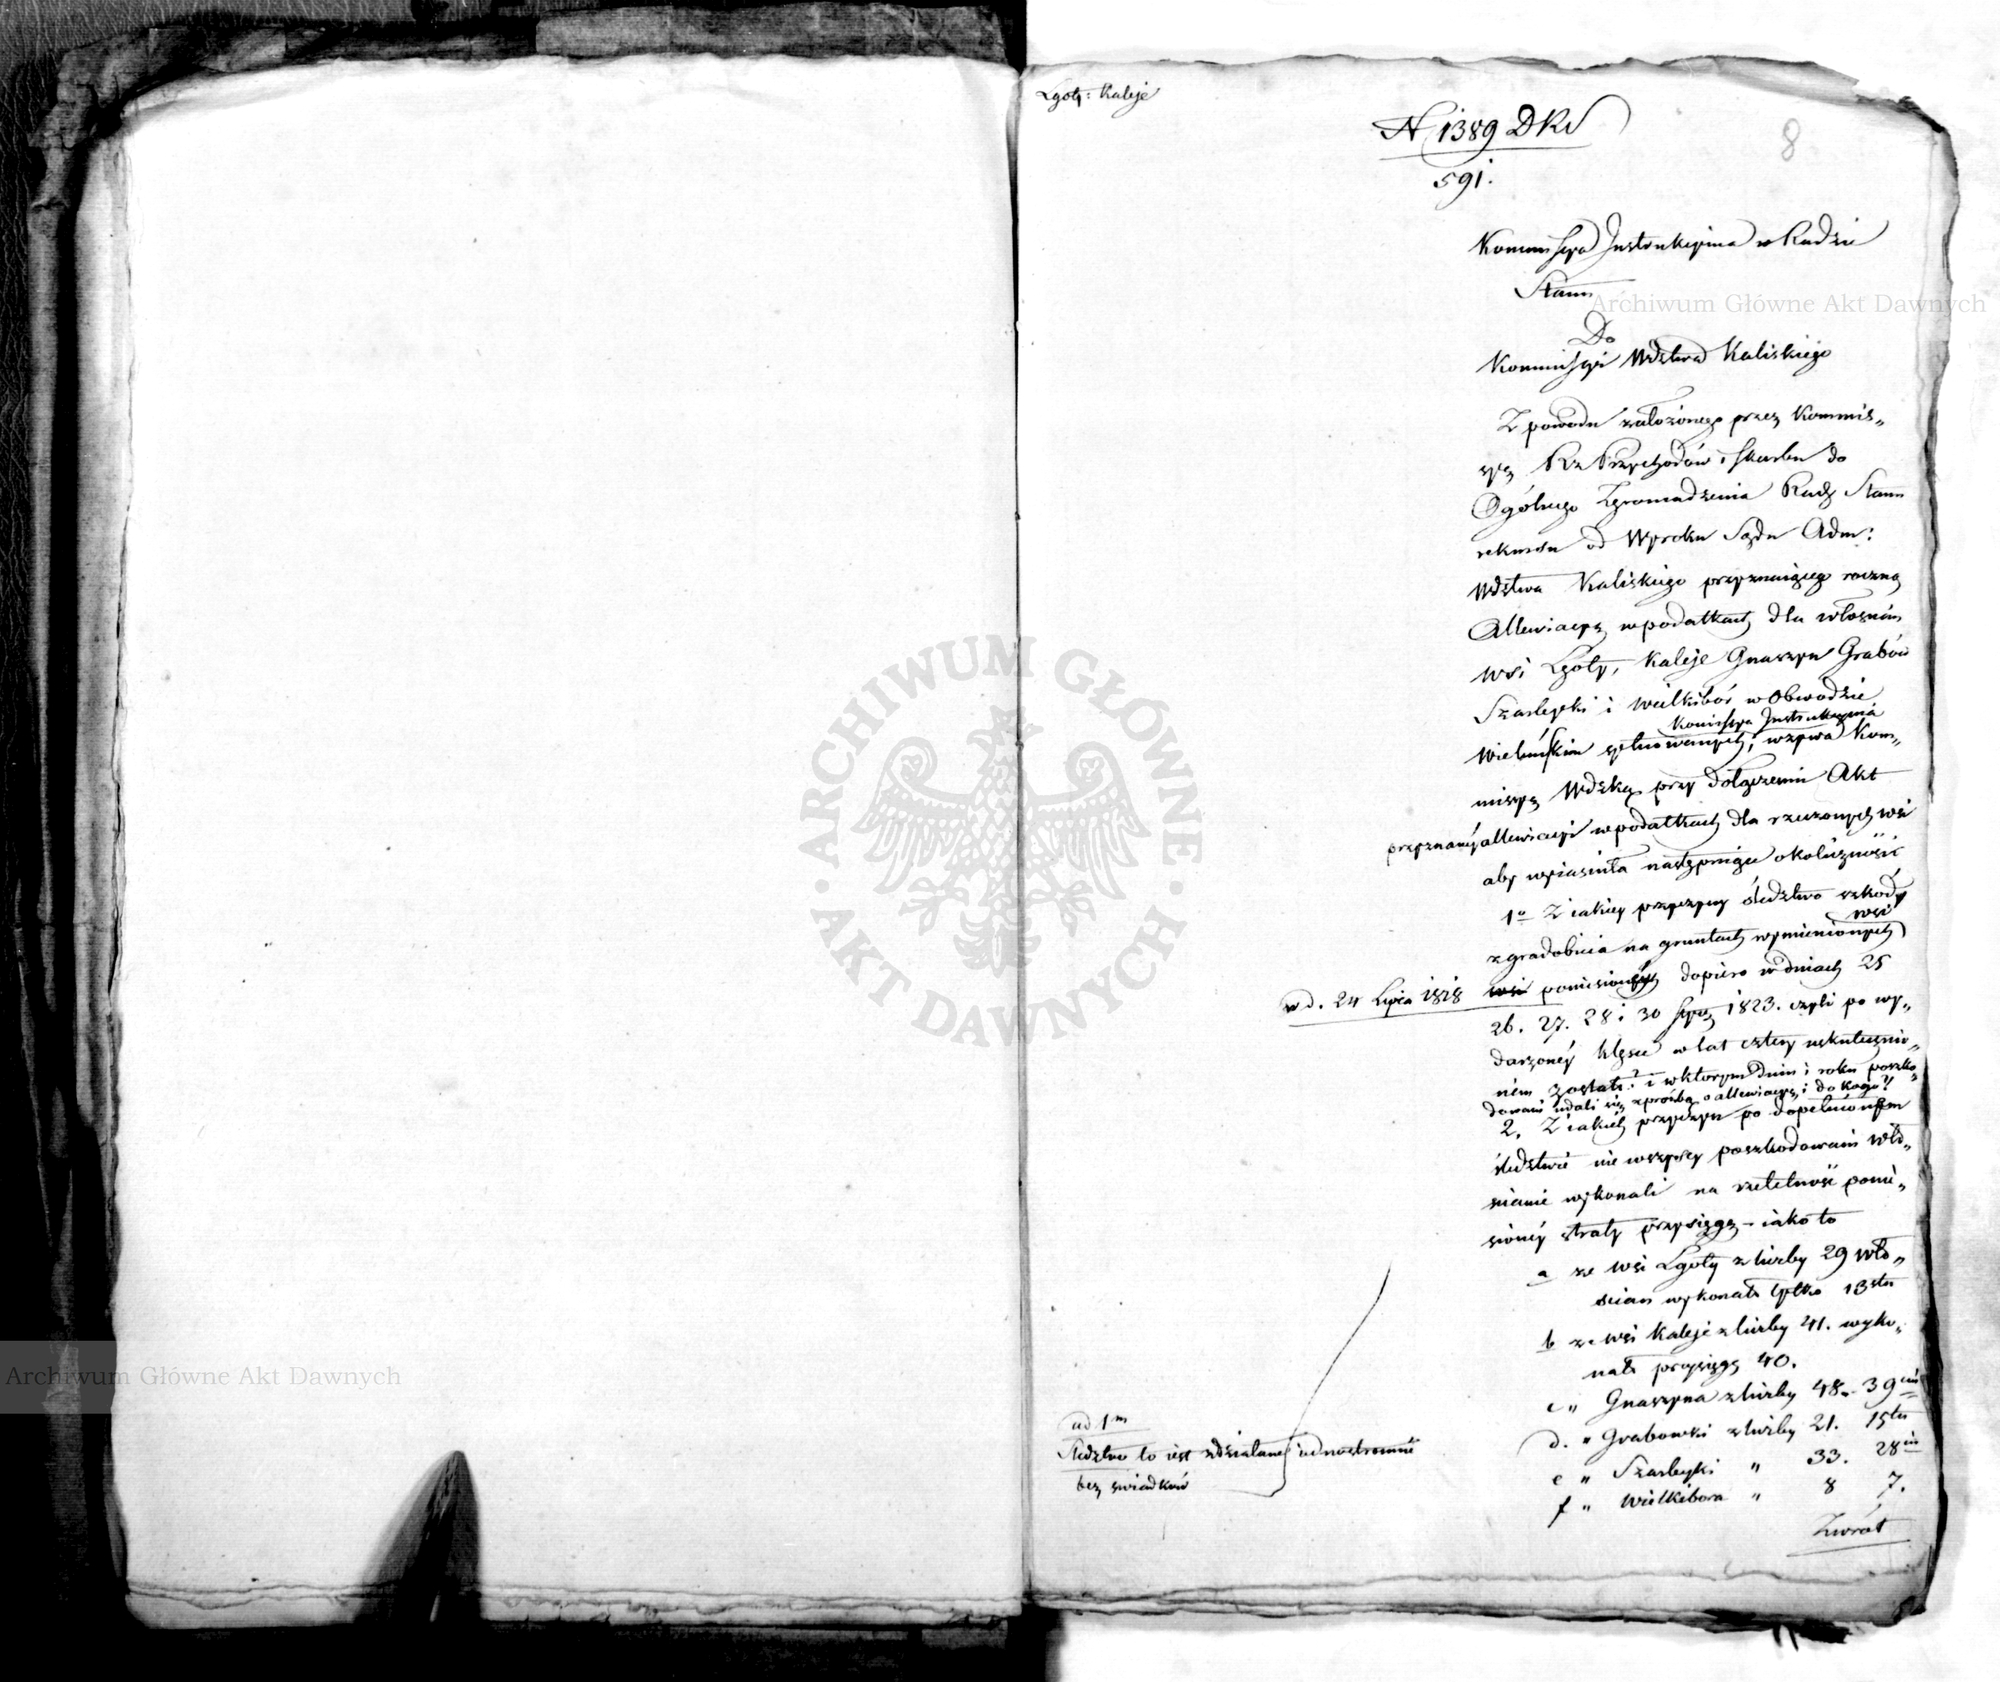 Lgoty: Kaleje
N 1389 DKS
591.
8
Kommissya Instrukcyina w Radzie
Stanu
Do
Kommissyi Wdztwa Kaliskiego
Z powodu założonego przez Kommis„
syą Rz Przychodów i Skarbu do
Ogólnego Zgromadzenia Rady Stanu
rekursu od Wyroku Sądu Adm:
Wdztwa Kaliskiego przyznaiącego roczną
Allewiacyą w podatkach dla włościan
wsi Lgoty, Kaleje Gnaszyn Grabów
Szarleyki i Wielkibór w Obwodzie
Kommissya Instrukcyina
Wieluńskim sytuowanych, wzywa Kom„
missyą Wdzką przy dołączeniu Akt
przyznanéy allewiacyi w podatkach dla rzeczonych wsi
aby wyiaśniła następuiące okoliczności
1o Z iakiey przyczyny śledztwo szkody
wsi
z gradobicia na gruntach wymienionych
w d. 24 Lipca 1818 wsi poniesionéy dopiero w dniach 25
26. 27. 28 i 30 1823. czyli po wy„
darzonéy klęsce w lat cztery uskutecznio„
ném zostało? i w którym dniu i roku poszko„
dowani udali się z prośbą o allewiacyą i do kogo?
2. Z iakich przyczyn po dopełnionym
śledztwie nie wszyscy poszkodowani wło„
ścianie wykonali na rzetelność ponie„
sionéy straty przysięgę – iako to
a ze wsi Lgoty z liczby 29 wło„
ścian wykonało tylko 13stu
b ze wsi Kaleje z liczby 41. wyko„
nało przysięgę 40.
c „ Gnaszyna z liczby 48 – 39ciu
d. „ Grabowki z liczby 21. 15stu
e „ Szarleyki „ 33. 28iu
f „ Wielkibora „ 8 7.
Zwrót
ad 1m
Śledztwo to iest zdziałane iednostronnie
bez świadków
Archiwum Główne Akt Dawnych
Archiwum Główne Akt Dawnych
ARCHIWUM GŁÓWNE
AKT DAWNYCH